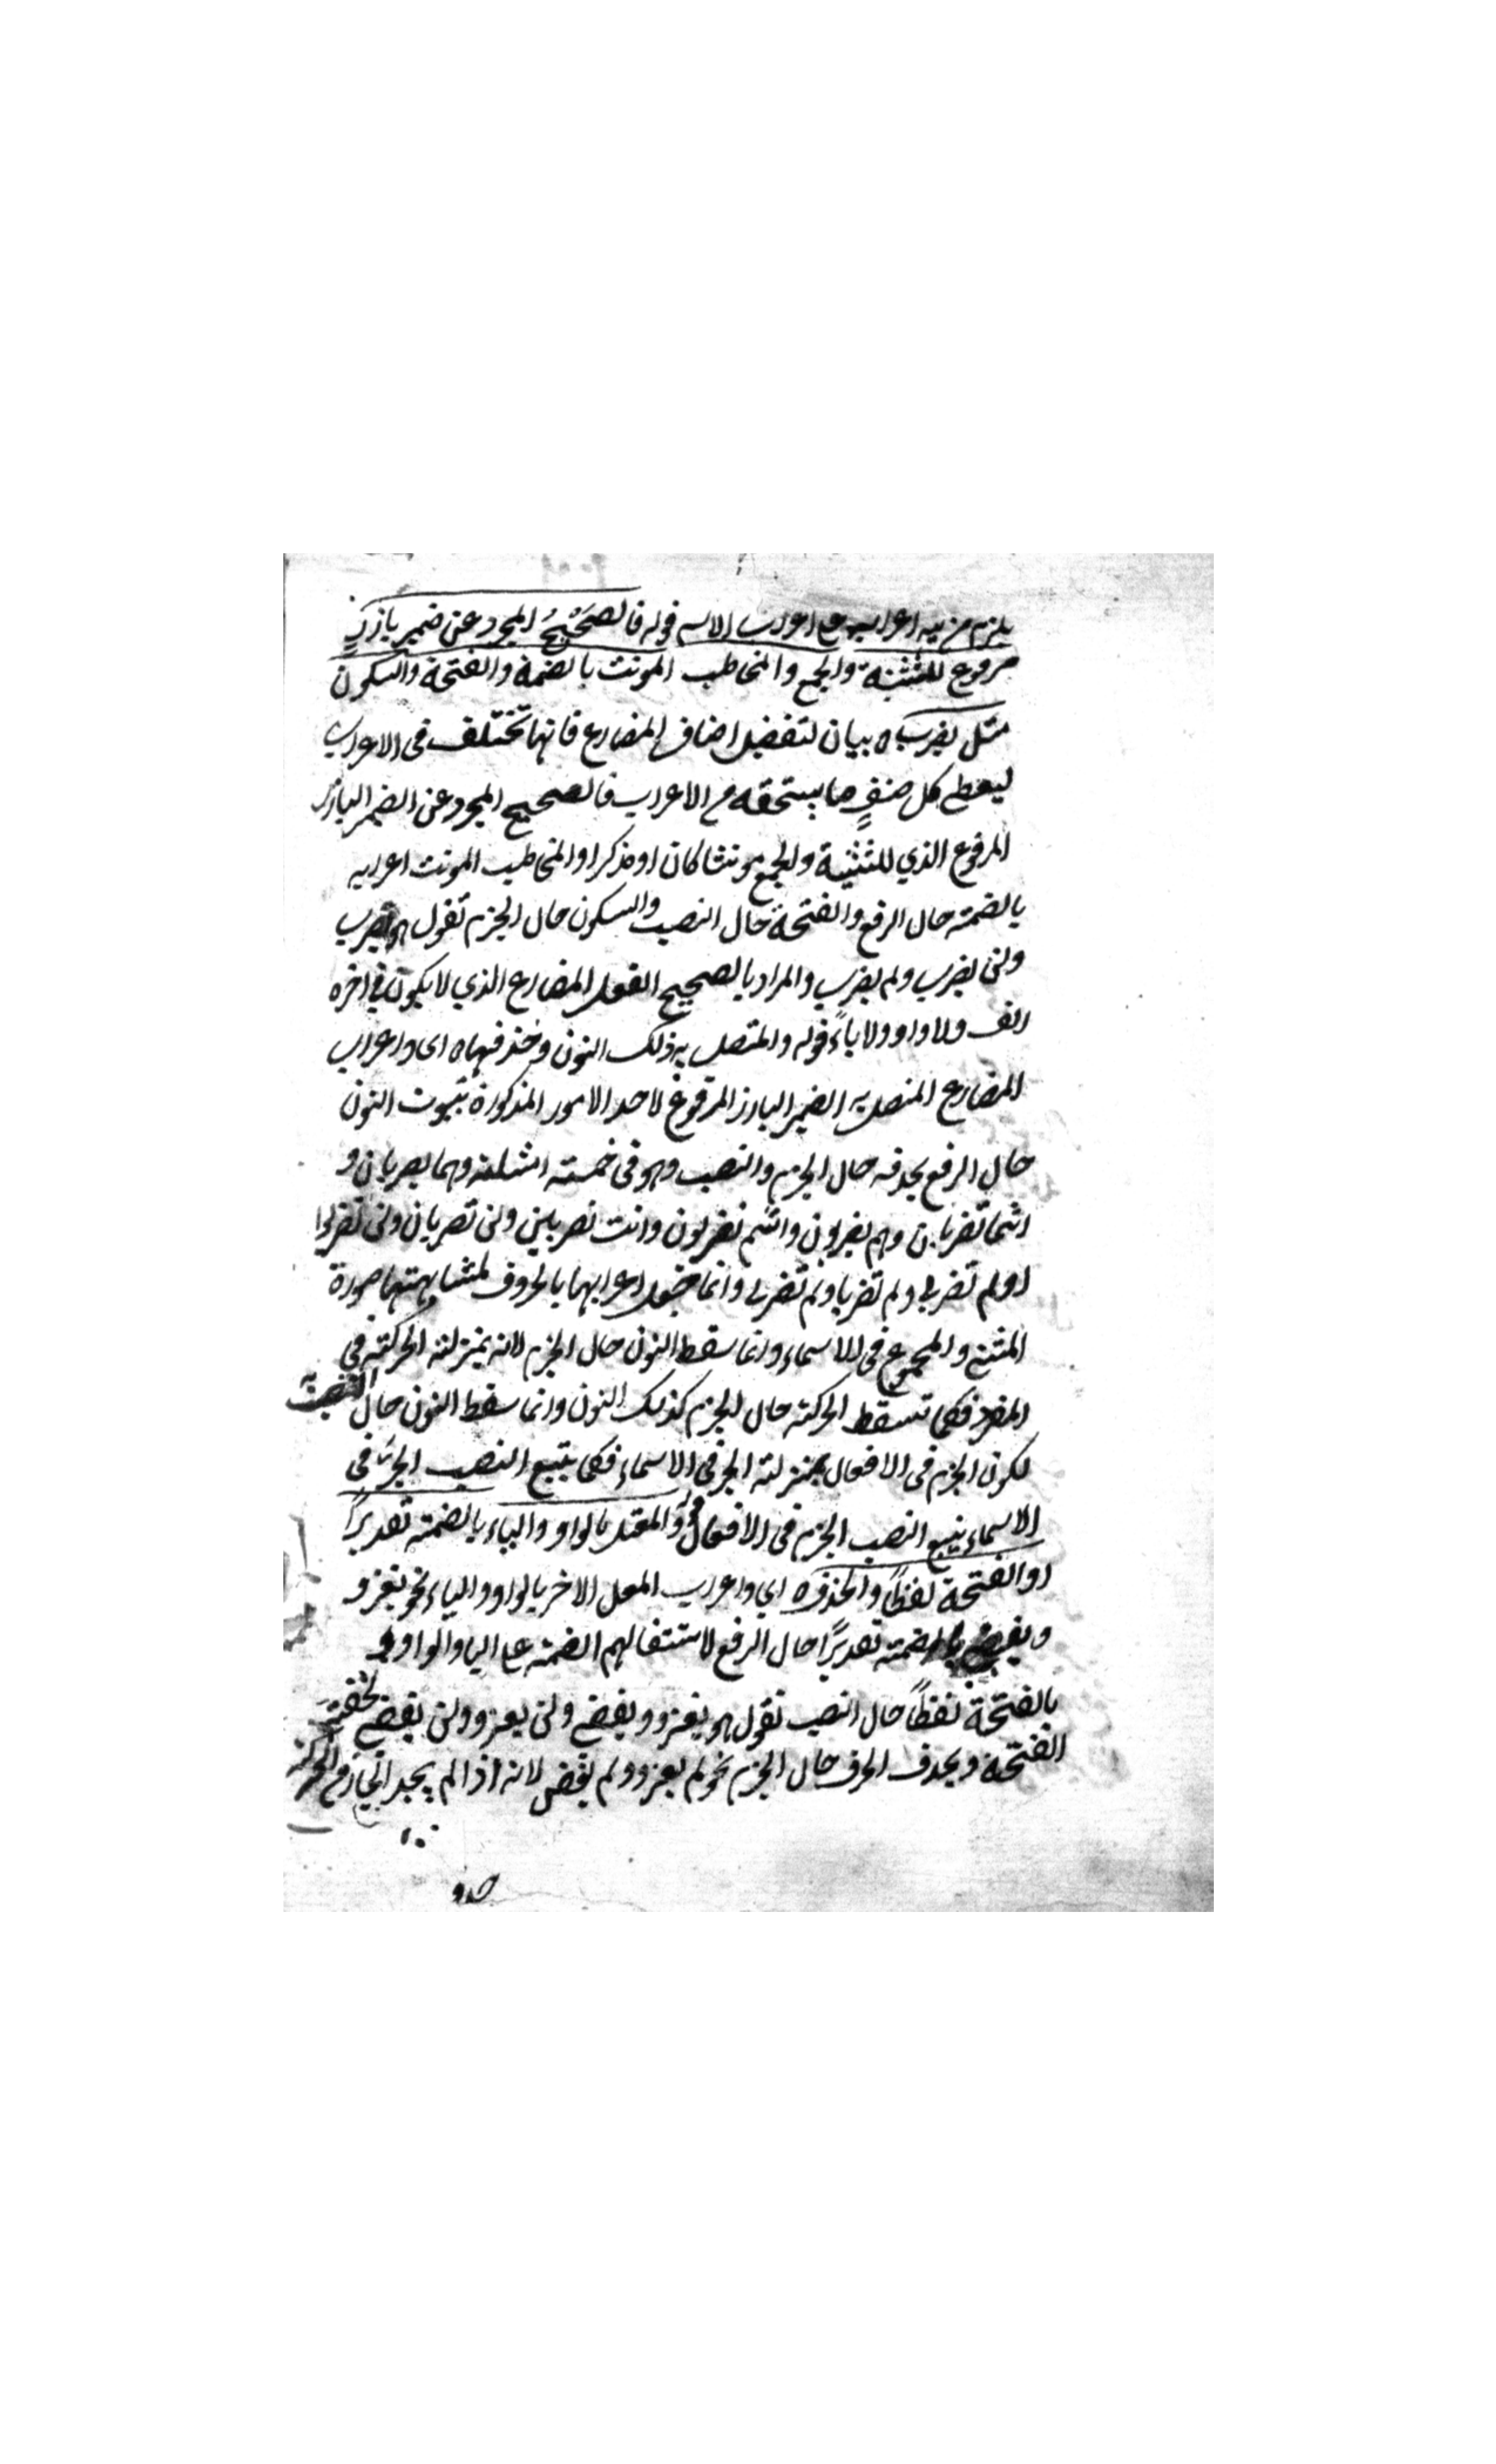 يلزم مزيه اعرابه على اعراب الاسم قوله فالصَحِيْحُ المجرد عن ضمير بارزٍ
مرفوع للتثنية والجمع والمخاطب المونث بالضمة والفتحة والسكون
مثل يضرب ه بيان لتفصيل اصناف المضارع فانها تختلف فى الاعراب
ليعطى كل صنفٍ ما يستحقه من الاعراب فالصحيح المجرد عن الضمير البارز
المرفوع الذي للتثنية والجمع مونثا كان او مذكرا والمخاطب المونث اعرابه
بالضمته حال الرفع والفتحة حال النصب والسكون حال الجزم تقول هو يضرب
ولن يضرب ولم يضرب والمراد بالصحيح الفعل المضارع الذي لا يكون في اخره
الف ولا واو ولا ياءً قوله والمتصل به ذلك النون وحذفهاه اى واعراب
المضارع المتصل به الضمير البارز المرفوع لاحد الامور المذكورة بثبوت النون
حال الرفع بحذفه حال الجزم والنصب وهو فى خمسته امثلته وهما يضربان و
انتما تضربان وهم يضربون وانتم تضربون وانت تضربين ولن تضربان ولن تضربوا
او لم تضربى ولم تضربا ولم تضربى وانما جعل اعرابهما بالحروف لمشابهتهما صورة
المثنى والمجموع فى الاسماء وانما سقط النون حال الجزم لانه بمنزلته الحركته في
المفرد فكما تسقط الحركته حال الجزم كذلك النون وانما سقط النون حال النصب
لكون الجزم فى الافعال بمنزلته الجر فى الاسماء فكما يتبع النصب الجر فى
الاسماء يتبع النصب الجزم فى الافعال قوله والمعتل بالواو والياء بالضمته تقديرًا
او الفتحة لفظًا والحذف ه اي واعراب المعل الاخر بالواو والياء نحو يغزو
ويقضى بالضمته تقديرًا حال الرفع لاستثقالهم الضمته على اليا والواو و
بالفتحة لفظًا حال النصب تقول هو يغزو ويقضى ولن يغزو ولن يقضى لخفته
الفتحة وبحذف الحرف حال الجزم نحو لم يغزو ولم يقض لانه اذا لم يجد الجازم الحركته